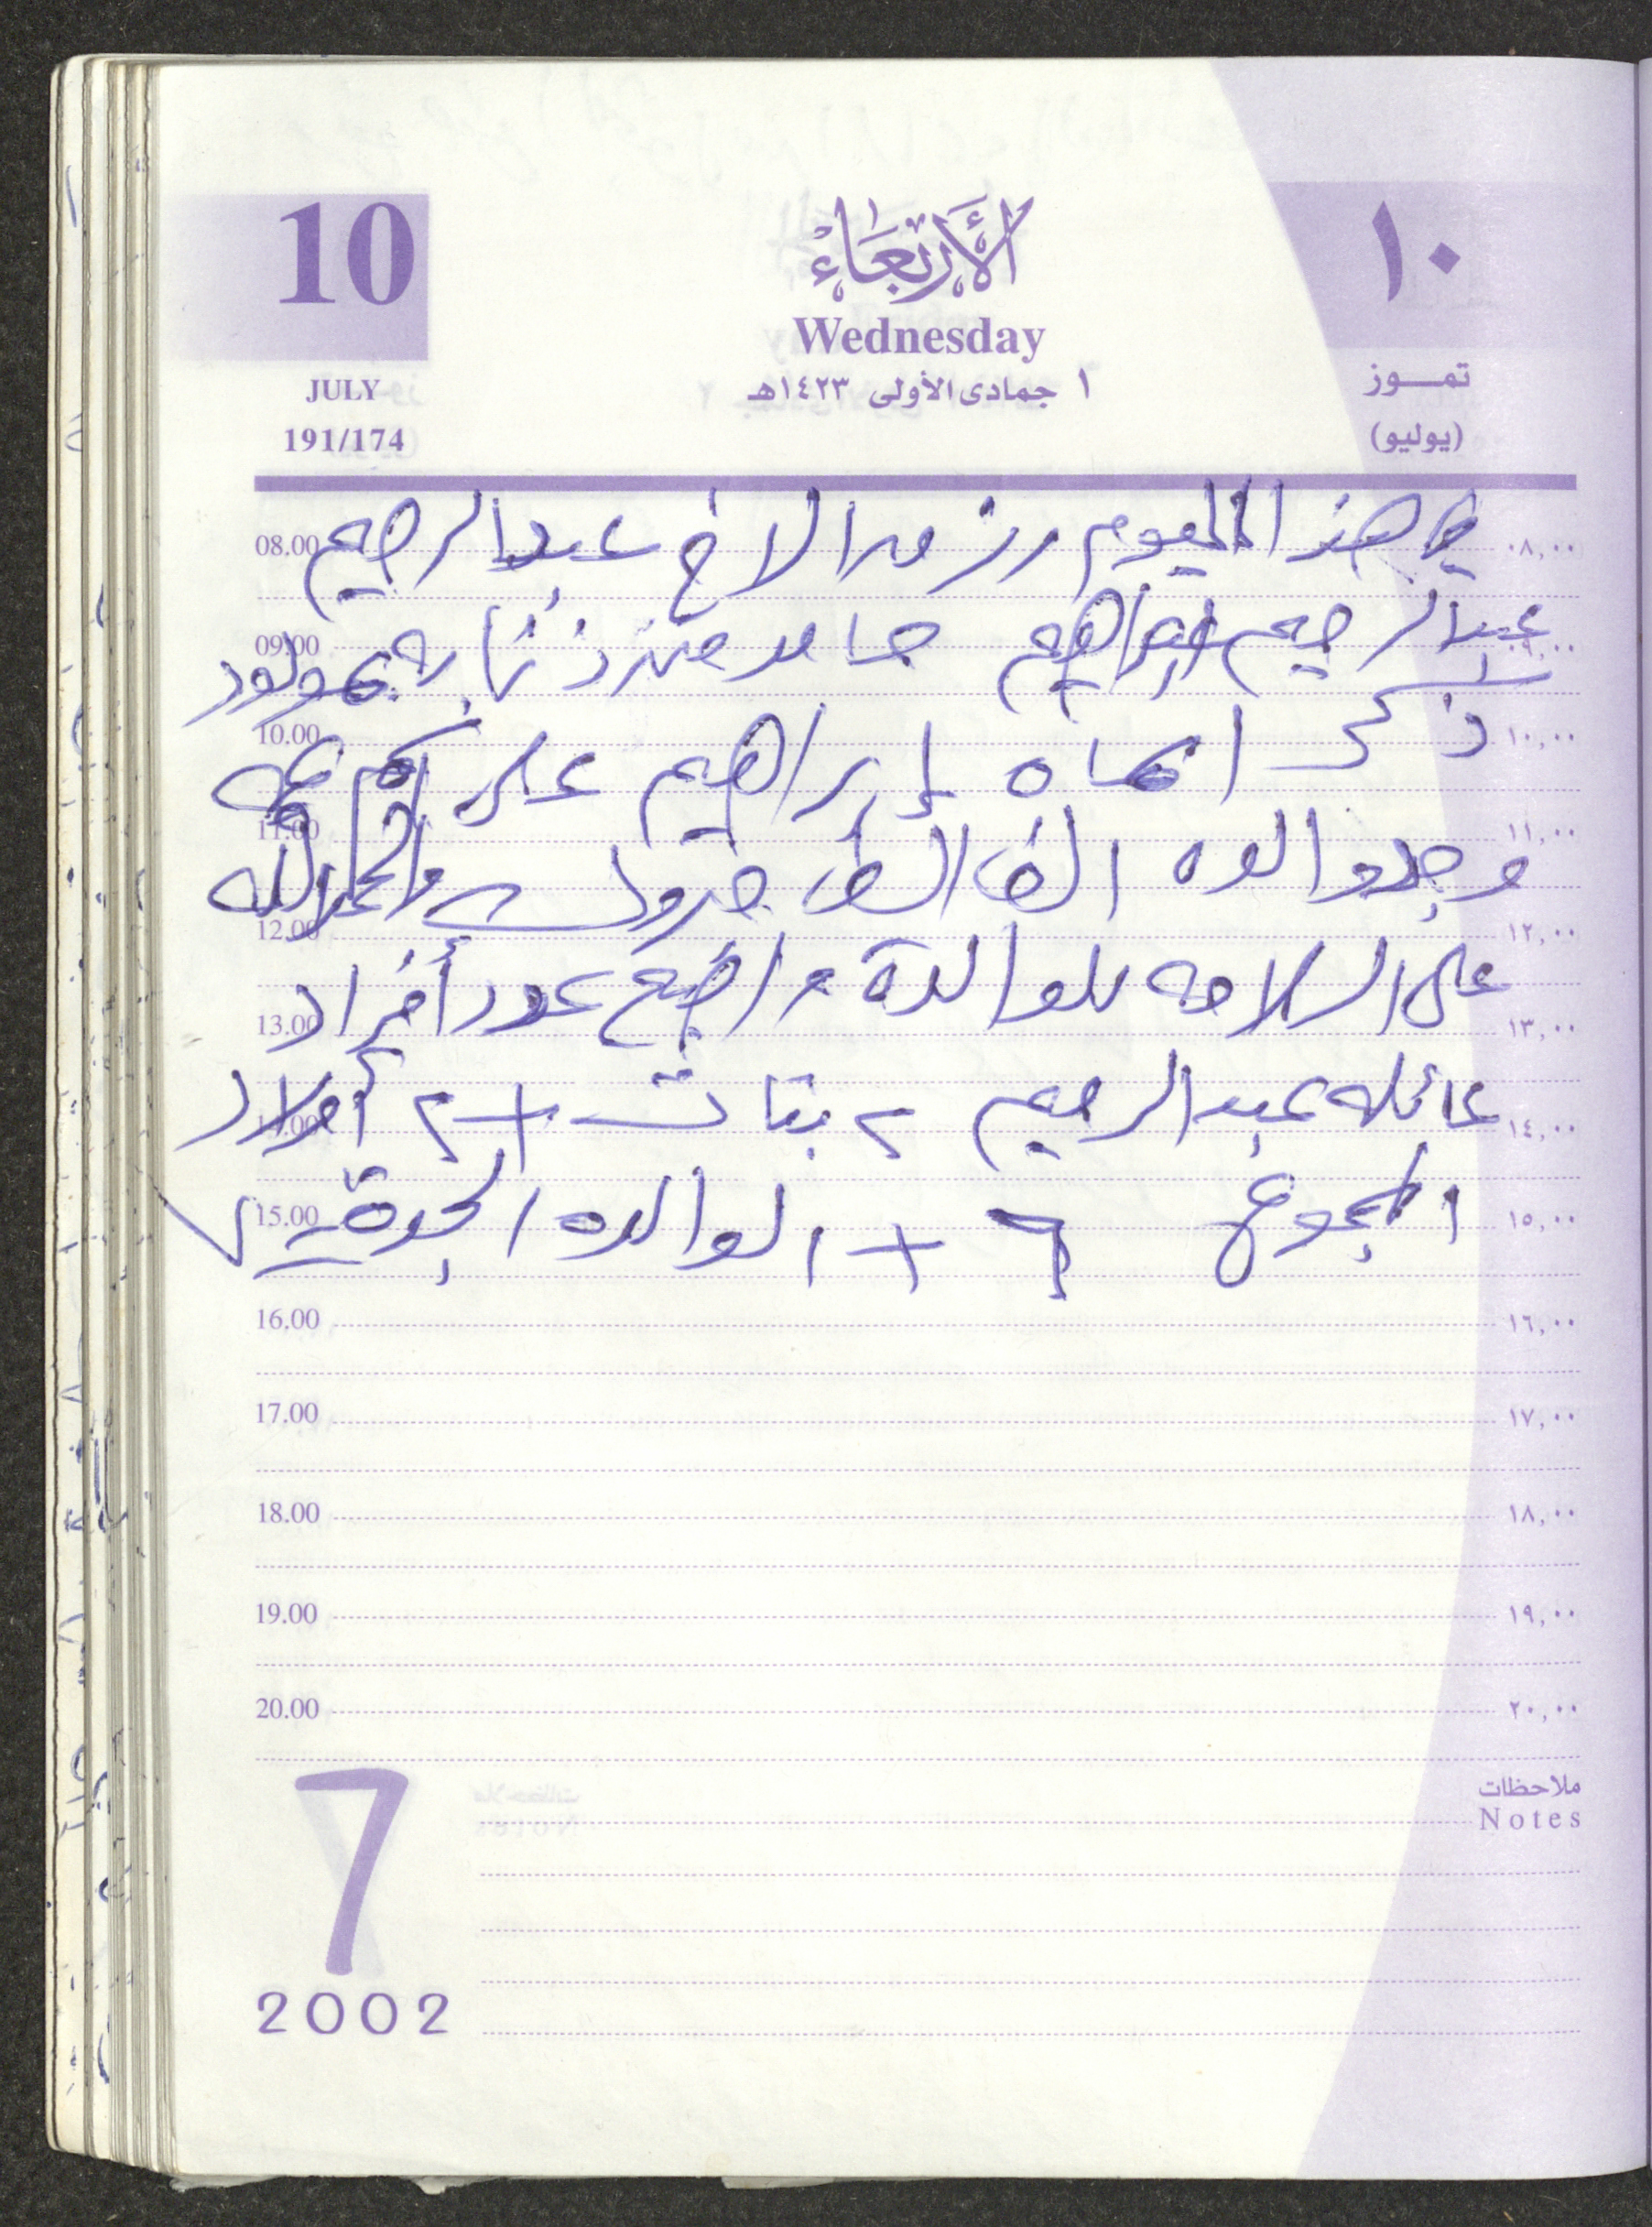 10
الأَرْبَعَاءْ
١٠
Wednesday
JULY
١ جمادى الأولى ١٤٢٣هـ
تمـــوز
191/174
(يوليو)
08.00 في هذا اليوم رزق الاخ عبدالرحيم ٠٨,٠٠
09.00 عبدالرحيم ابراهيم حامد بمولود ٠٩,٠٠
10.00 ذكر اسماه إبراهيم على اسم عمه ١٠,٠٠
11.00 وجد والده الف الف مبروك والحمدلله ١١,٠٠
12.00 على السلامه للوالدة واصبح عدد أفراد ١٢,٠٠
13.00 ١٣,٠٠
عائله عبدالرحيم ٢ بنات + ٢ أولاد ١٤,٠٠
15.00 المجموع ٦ + الوالده الجدة ٧ ١٥,٠٠
16.00 ١٦,٠٠
17.00 ١٧,٠٠
18.00 ١٨,٠٠
19.00 ١٩,٠٠
20.00 ٢٠,٠٠
ملاحظات
Notes
7
2002